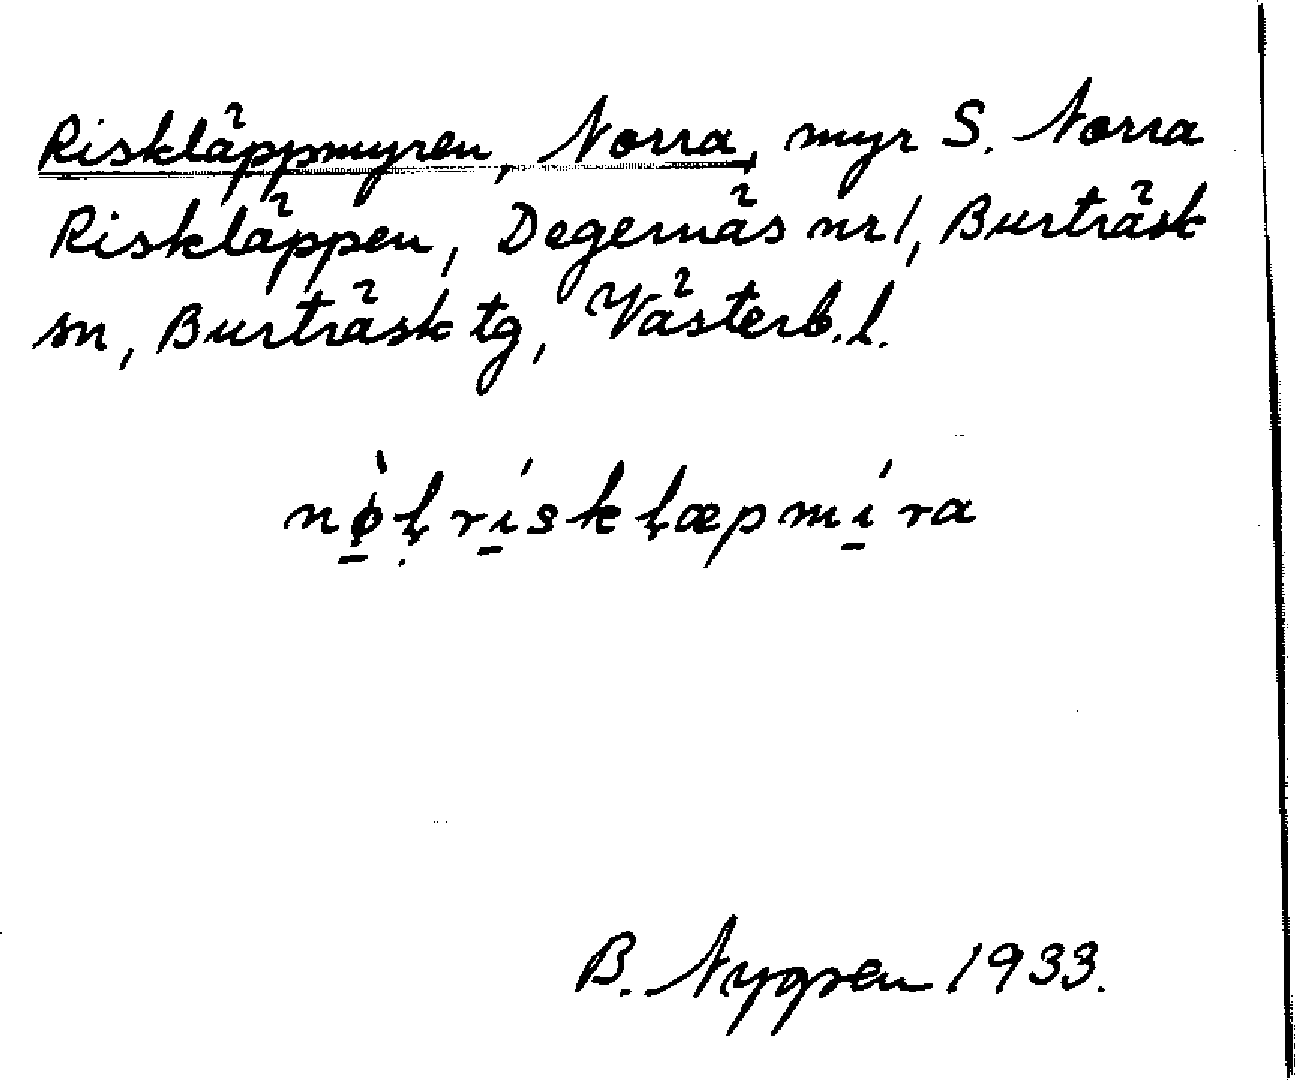 Riskläppmyren, Norra, myr S. Norra
Riskläppen, Degernäs nr 1, Burträsk
sn, Burträsk tg, Västerb. l.
nø̀ḷrískḷæpmíra
B. Nygren 1933.